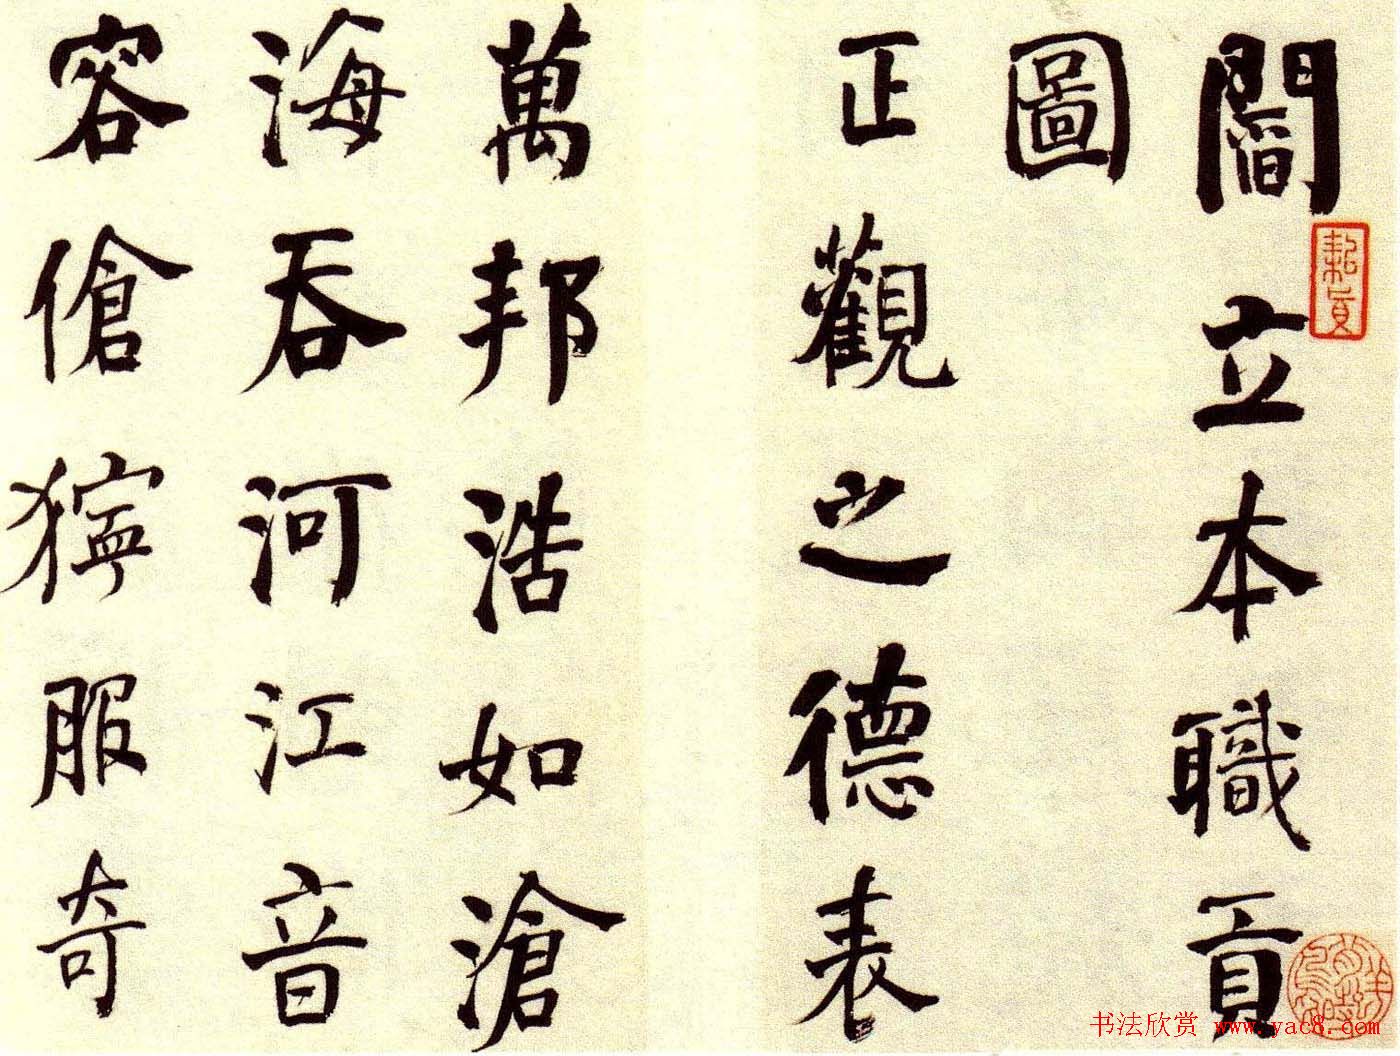 閻立本職貢
圖
正觀之德表
萬邦浩如滄
海吞河江音
容傖獰服奇
书法欣赏 www.yac8.com